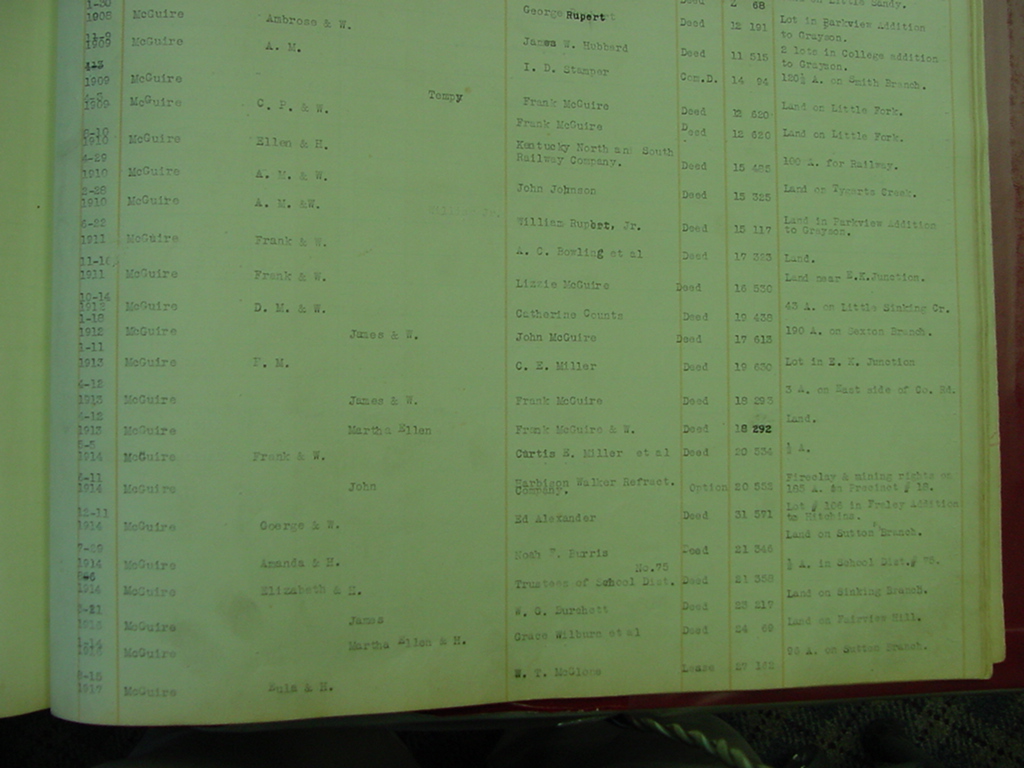 1-30 Deed 2 68 on Little Sandy.
1908 McGuire Ambrose & W. George Rupert Deed 12 191 Lot in Parkview Addition to Grayson.
11-9
1909 McGuire A. M. James W. Hubbard Deed 11 515 2 lots in College addition to Grayson.
1909 McGuire I. D. Stamper Com.D. 14 94 120½ A. on Smith Branch.
1909 McGuire C. P. & W. Tompy Frank McGuire Deed 12 620 Land on Little Fork.
Frank McGuire Deed 12 620 Land on Little Fork.
1910 McGuire Ellen & H. Kentucky North and South Railway Company. Deed 15 485 100 A. for Railway.
4-29
1910 McGuire A. M. & W. John Johnson Deed 15 325 Land on Tygarts Creek.
2-28
1910 McGuire A. M. &W. William Rupert, Jr. Deed 15 117 Land in Parkview Addition to Grayson.
1911 McGuire Frank & W. A. C. Bowling et al Deed 17 323 Land.
1911 McGuire Frank & W. Lizzie McGuire Deed 16 530 Land near E.K.Junction.
10-14
1912 McGuire D. M. & W. Catherine Counts Deed 19 438 43 A. on Little Sinking Cr.
1-18
1912 McGuire James & W. John McGuire Deed 17 613 190 A. on Sexton Branch.
1-11
1913 McGuire F. M. C. E. Miller Deed 19 630 Lot in E. K. Junction
4-12
1913 McGuire James & W. Frank McGuire Deed 18 293 3 A. on East side of Co. Rd.
4-12
1913 McGuire Martha Ellen Frank McGuire & W. Deed 18 292 Land.
5-5
1914 McGuire Frank & W. Curtis E. Miller et al Deed 20 534 ½ A.
1914 McGuire John Harbison Walker Refract. Company. Option 20 552 Fireclay & mining rights on 185 A. in Precinct # 18.
12-11
1914 McGuire George & W. Ed Alexander Deed 31 571 Lot # 106 in Fraley Addition to Hitchins.
1914 McGuire Amanda & H. Noah F. Burris Deed 21 346 Land on Sutton Branch.
1914 McGuire Elizabeth & H. Trustees of School Dist. No.75 Deed 21 358 ½ A. in School Dist.# 75.
McGuire James W. G. Burchett Deed 23 217 Land on Sinking Branch.
McGuire Martha Ellen & H. Grace Wilburn et al Deed 24 69 Land on Fairview Hill.
1917 McGuire Eula & H. W. T. McGlone Lease 27 162 96 A. on Sutton Branch.